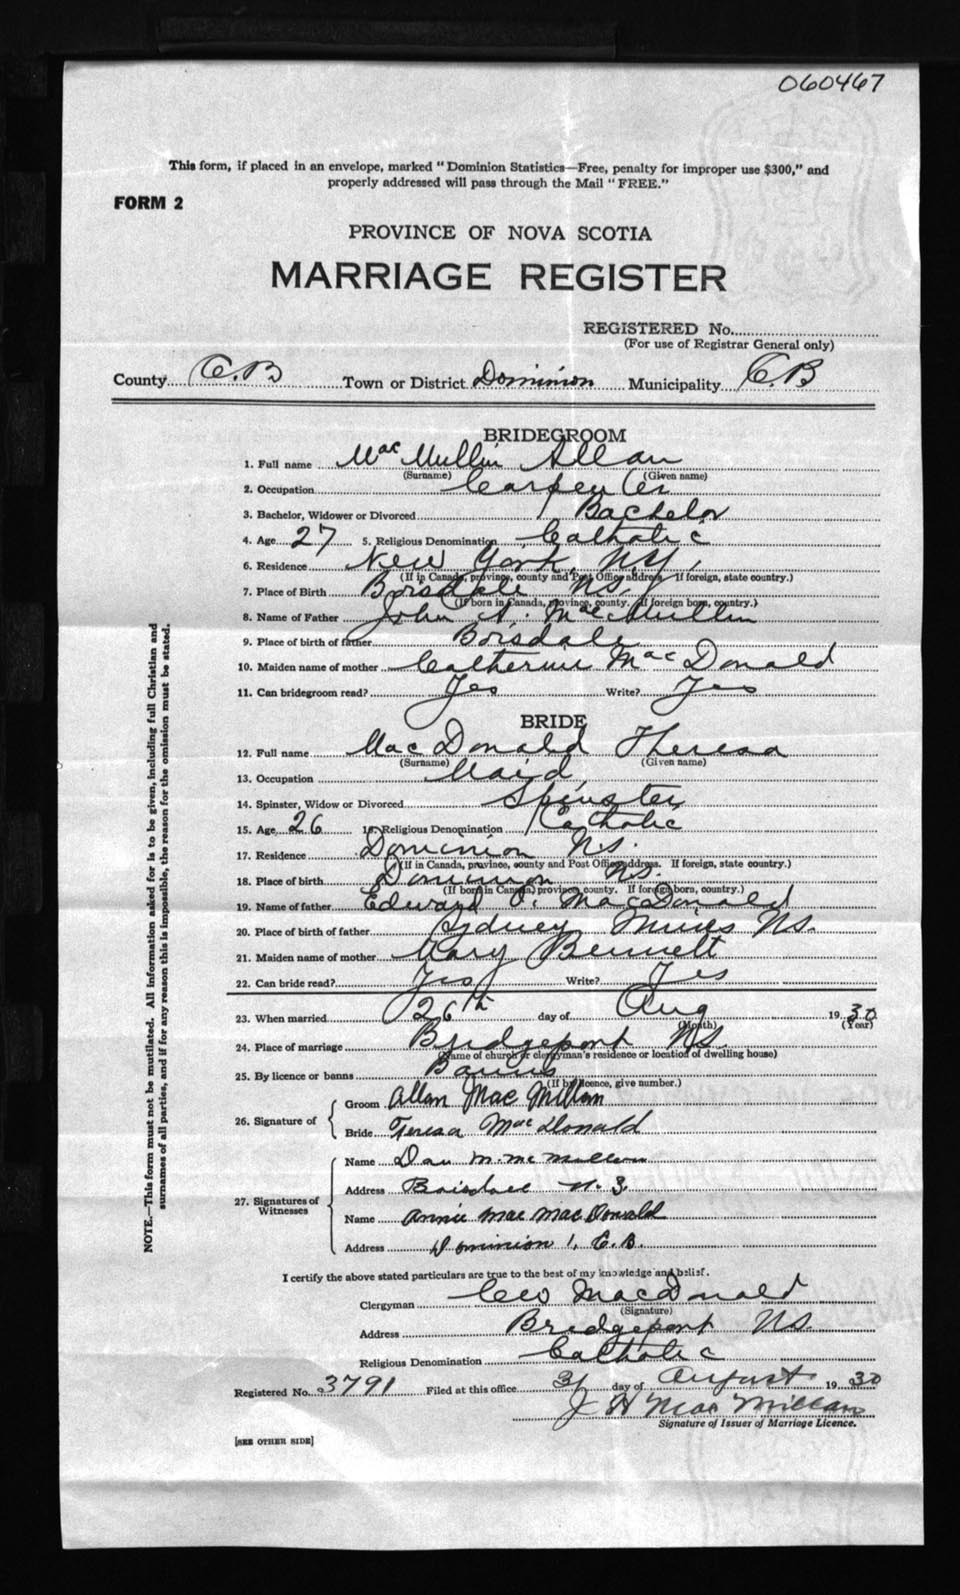 060467
This form, if placed in an envelope, marked "Dominion Statistics—Free, penalty for improper use $300," and
properly addressed will pass through the Mail "FREE."
FORM 2
PROVINCE OF NOVA SCOTIA
MARRIAGE REGISTER
REGISTERED No.
(For use of Registrar General only)
County C.B. Town or District Dominion Municipality C.B
BRIDEGROOM
1. Full name MacMullin Allan
(Surname) (Given name)
2. Occupation Carpenter
3. Bachelor, Widower or Divorced Bachelor
4. Age 27 5. Religious Denomination Catholic
6. Residence New York, N.Y.
(If in Canada, province, county and Post Office address. If foreign, state country.)
7. Place of Birth Boisdale N.S.
(If born in Canada, province, county. If foreign born, country.)
8. Name of Father John A. MacMullin
9. Place of birth of father Boisdale
10. Maiden name of mother Catherine MacDonald
11. Can bridegroom read? Yes Write? Yes
BRIDE
12. Full name MacDonald Theresa
(Surname) (Given name)
13. Occupation Maid
14. Spinster, Widow or Divorced Spinster
15. Age 26 16. Religious Denomination Catholic
17. Residence Dominion N.S.
(If in Canada, province, county and Post Office address. If foreign, state country.)
18. Place of birth Dominion N.S.
(If born in Canada, province, county. If foreign born, country.)
19. Name of father Edward P. MacDonald
20. Place of birth of father Sydney Mines N.S.
21. Maiden name of mother Mary Bennett
22. Can bride read? Yes Write? Yes
23. When married 26th day of Aug 1930
(Month) (Year)
24. Place of marriage Bridgeport N.S.
(Name of church or clergyman's residence or location of dwelling house)
25. By licence or banns Banns
(If by licence, give number.)
26. Signature of
Groom Allan Mac Millan
Bride Teresa MacDonald
27. Signatures of Witnesses
Name Dan M. McMullin
Address Boisdale N.S.
Name Annie Mae MacDonald
Address Dominion 1, C.B.
I certify the above stated particulars are true to the best of my knowledge and belief.
Clergyman Geo MacDonald
(Signature)
Address Bridgeport N.S.
Religious Denomination Catholic
Registered No. 3791 Filed at this office 31 day of August 1930
J H MacMillan
Signature of Issuer of Marriage Licence.
[SEE OTHER SIDE]
NOTE.—This form must not be mutilated. All information asked for is to be given, including full Christian and
surnames of all parties, and if for any reason this is impossible, the reason for the omission must be stated.